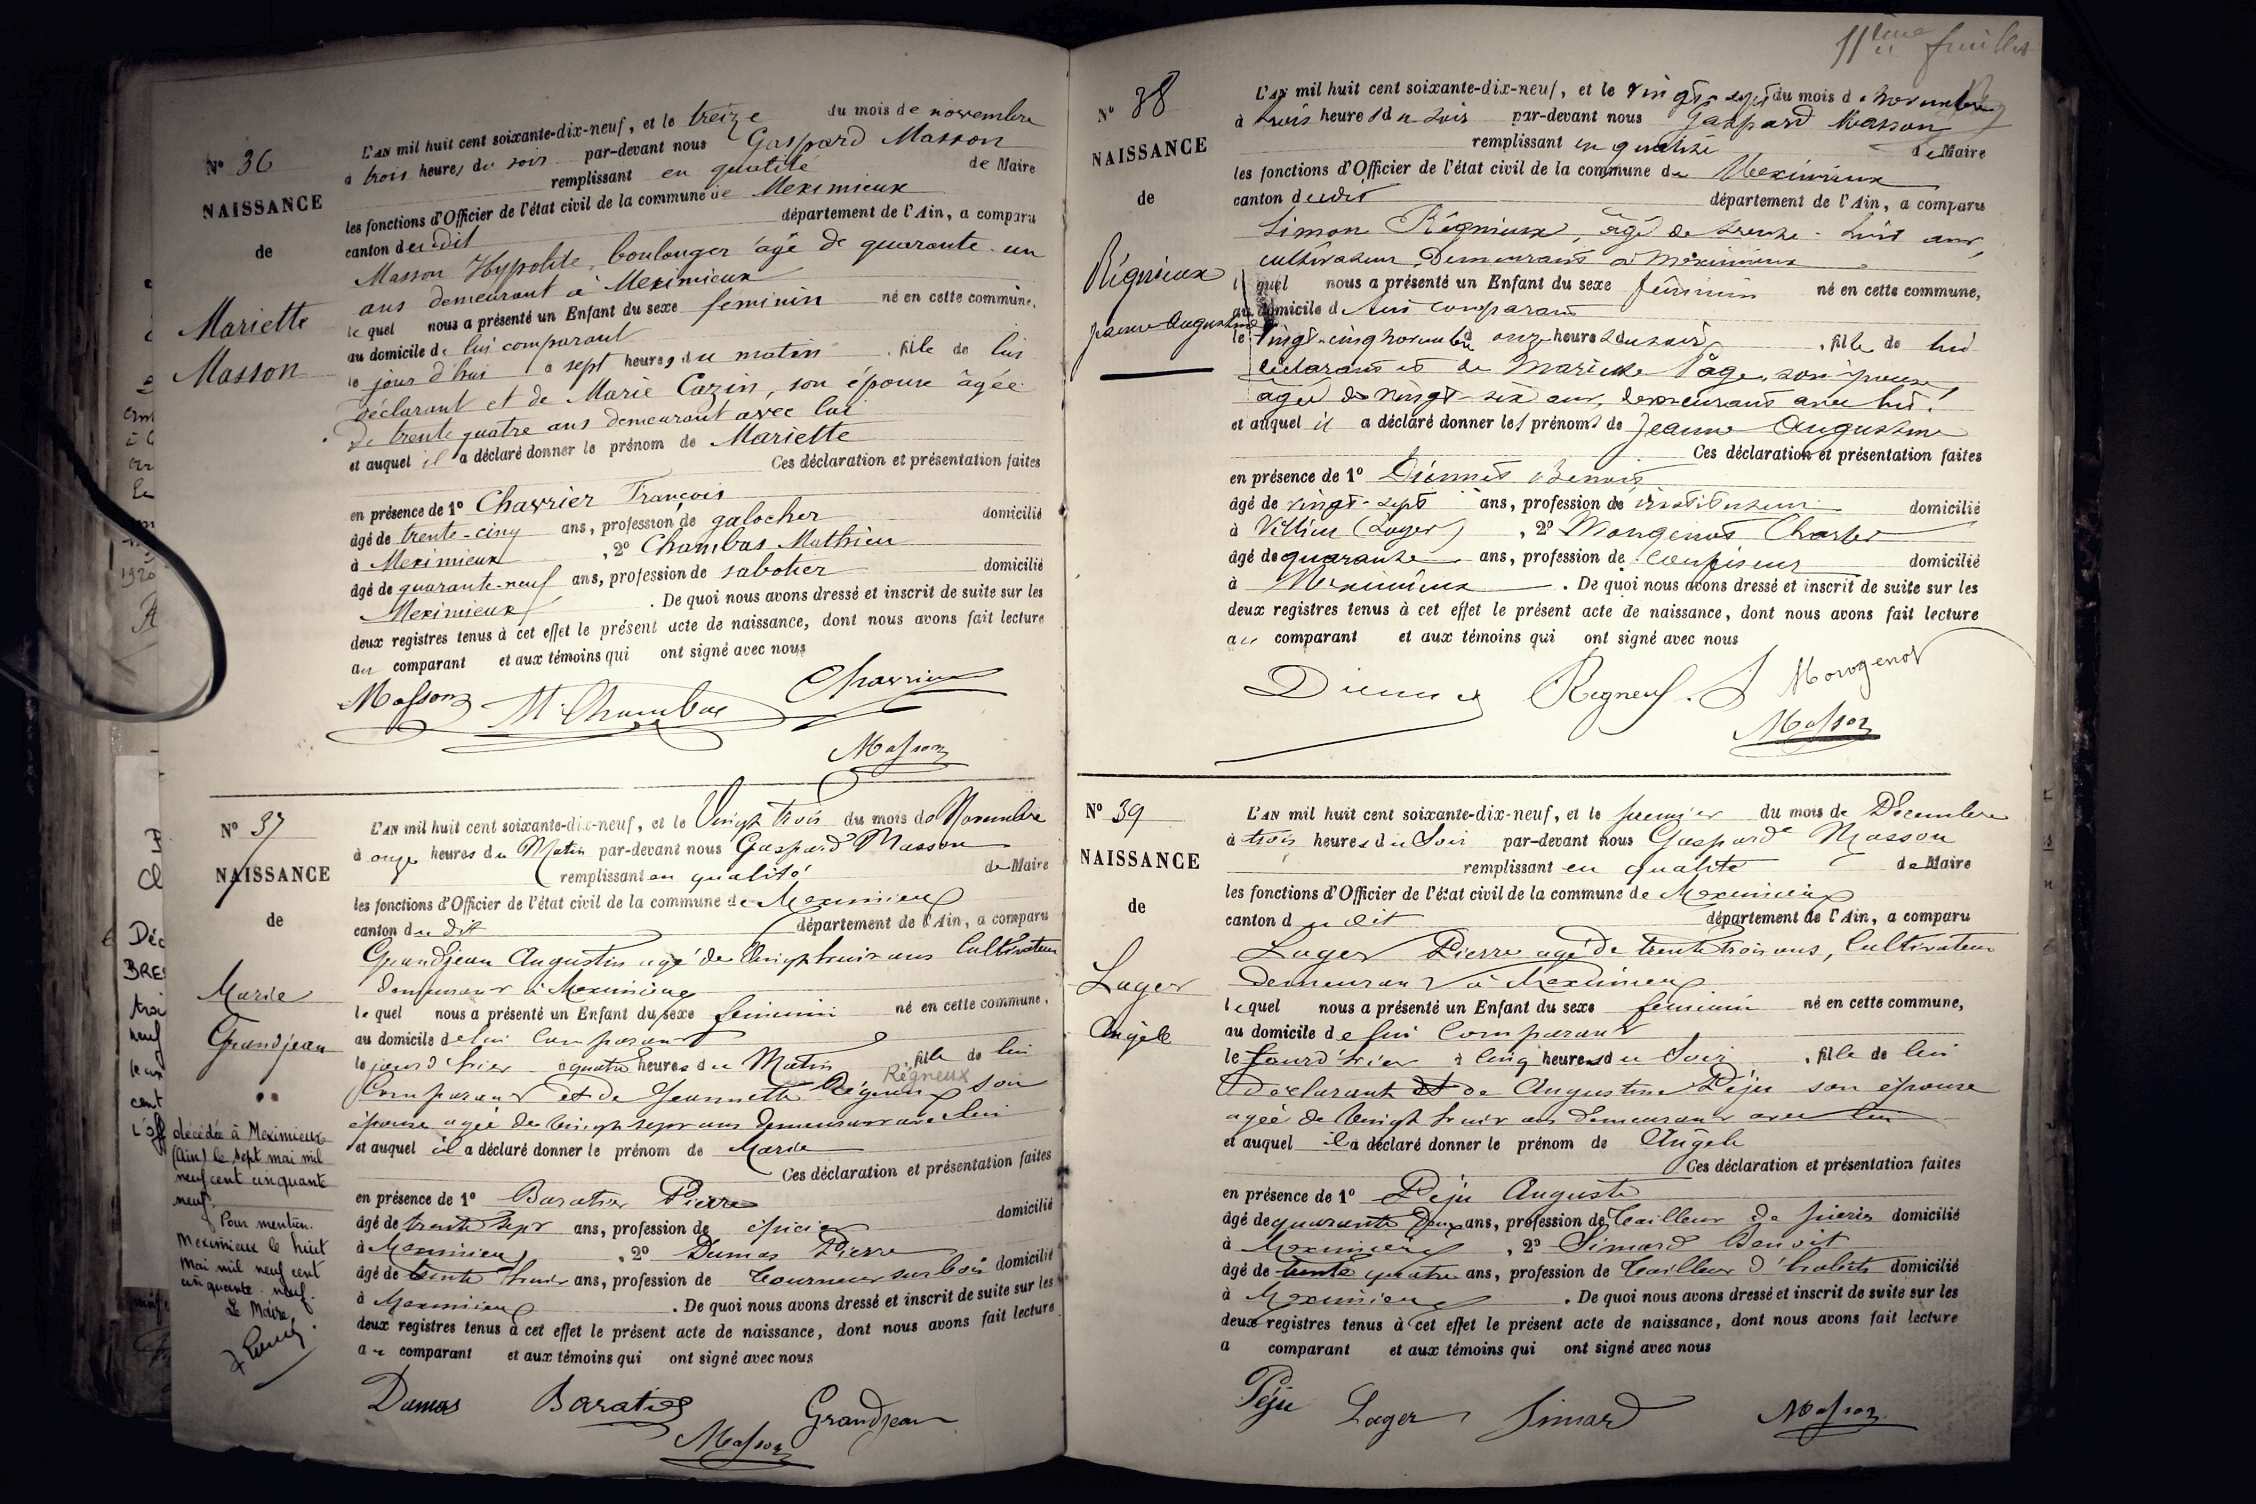 N° 36
NAISSANCE
de
Mariette
Masson
L'AN mil huit cent soixante-dix-neuf, et le treize du mois de novembre
à trois heures du soir par-devant nous Gaspard Masson
remplissant en qualité de Maire
les fonctions d'Officier de l'état civil de la commune de Meximieux
canton dudit département de l'Ain, a comparu
Masson Hypolite, boulanger âgé de quarante-un
ans demeurant à Meximieux
lequel nous a présenté un Enfant du sexe feminin né en cette commune,
au domicile de lui comparant
le jour d'hui à sept heures du matin, fille de lui
déclarant et de Marie Cazin, son épouse âgée
de trente quatre ans demeurant avec lui
et auquel il a déclaré donner le prénom de Mariette
Ces déclaration et présentation faites
en présence de 1° Charrier François
âgé de trente-cinq ans, profession de galocher domicilié
à Meximieux, 2° Chambas Mathieu
âgé de quarante-neuf ans, profession de sabotier domicilié
Meximieux. De quoi nous avons dressé et inscrit de suite sur les
deux registres tenus à cet effet le présent acte de naissance, dont nous avons fait lecture
au comparant et aux témoins qui ont signé avec nous
Masson M. Chambas Charrier
Masson
N° 37
NAISSANCE
de
Marie
Grandjean
décédée à Meximieux
(Ain) le sept mai mil
neuf cent cinquante
neuf.
Pour mention.
Meximieux le huit
mai mil neuf cent
cinquante neuf.
Le Maire,
L'AN mil huit cent soixante-dix-neuf, et le Vingt trois du mois de Novembre
à onze heures du Matin par-devant nous Gaspard Masson
remplissant en qualité de Maire
les fonctions d'Officier de l'état civil de la commune de Meximieux
canton du dit département de l'Ain, a comparu
Grandjean Augustin agé de Vingt huit ans Cultivateur
demeurant à Meximieux
lequel nous a présenté un Enfant du sexe feminin né en cette commune,
au domicile de lui Comparant
le jour d'hier à quatre heures du Matin, fille de lui
Régneux
Comparant et de Jeannette Régneux son
épouse agée de Vingt sept ans demeurant avec lui
et auquel il a déclaré donner le prénom de Marie
Ces déclaration et présentation faites
en présence de 1° Baratier Pierre
âgé de trente sept ans, profession de épicier domicilié
à Meximieux, 2° Dumas Pierre
âgé de trente huit ans, profession de Tourneur sur bois domicilié
à Meximieux. De quoi nous avons dressé et inscrit de suite sur les
deux registres tenus à cet effet le présent acte de naissance, dont nous avons fait lecture
au comparant et aux témoins qui ont signé avec nous
Dumas Baratier Grandjean
Masson
11ème feuillet
N° 38
NAISSANCE
de
Régnieux
Jeanne Augustine
L'AN mil huit cent soixante-dix-neuf, et le vingt-sept du mois de novembre
à trois heures du soir par-devant nous Gaspard Masson
remplissant en qualité de Maire
les fonctions d'Officier de l'état civil de la commune de Meximieux
canton dudit département de l'Ain, a comparu
Simon Régnieux, âgé de trente-huit ans,
cultivateur, Demeurant à Meximieux
lequel nous a présenté un Enfant du sexe féminin né en cette commune,
au domicile de lui comparant
le vingt-cinq novembre à onze heures du soir, fille de lui
déclarant et de Mariette Page, son épouse
âgée de vingt-six ans, demeurant avec lui.
et auquel il a déclaré donner les prénoms de Jeanne Augustine
Ces déclaration et présentation faites
en présence de 1° Diennet Benoit
âgé de vingt-sept ans, profession de instituteur domicilié
à Villieu (Loyes), 2° Mongenot Charles
âgé de quarante ans, profession de Confiseur domicilié
à Meximieux. De quoi nous avons dressé et inscrit de suite sur les
deux registres tenus à cet effet le présent acte de naissance, dont nous avons fait lecture
au comparant et aux témoins qui ont signé avec nous
Diennet Regneux. Mongenot
Masson
N° 39
NAISSANCE
de
Lager
Angèle
L'AN mil huit cent soixante-dix-neuf, et le premier du mois de Décembre
à trois heures du Soir par-devant nous Gaspard Masson
remplissant en qualité de Maire
les fonctions d'Officier de l'état civil de la commune de Meximieux
canton du dit département de l'Ain, a comparu
Lager Pierre agé de trente trois ans, Cultivateur
demeurant à Meximieux
lequel nous a présenté un Enfant du sexe féminin né en cette commune,
au domicile de lui Comparant
le Jour d'hier à Cinq heures du Soir, fille de lui
déclarant et de Augustine Péju son épouse
agée de Vingt huit ans demeurant avec lui
et auquel il a déclaré donner le prénom de Angèle
Ces déclaration et présentation faites
en présence de 1° Péju Auguste
âgé de quarante deux ans, profession de Tailleur de pierres domicilié
à Meximieux, 2° Simard Benoit
âgé de trente quatre ans, profession de Tailleur d'habits domicilié
à Meximieux. De quoi nous avons dressé et inscrit de suite sur les
deux registres tenus à cet effet le présent acte de naissance, dont nous avons fait lecture
a comparant et aux témoins qui ont signé avec nous
Péju Lager Simard Masson